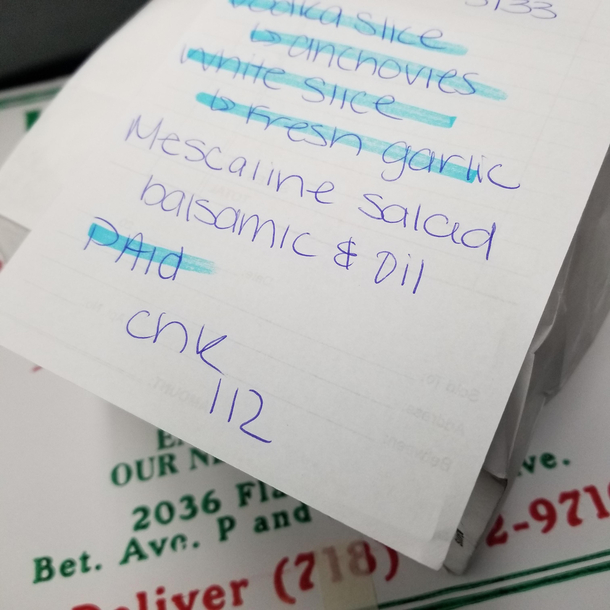 3133
vodka slice
↳ anchovies
White slice
↳ Fresh garlic
Mescaline salad
balsamic & Oil
PAId
chk
112
OUR
2036 Fla
Bet. Ave. P and
ve.
Deliver (718)
2-971